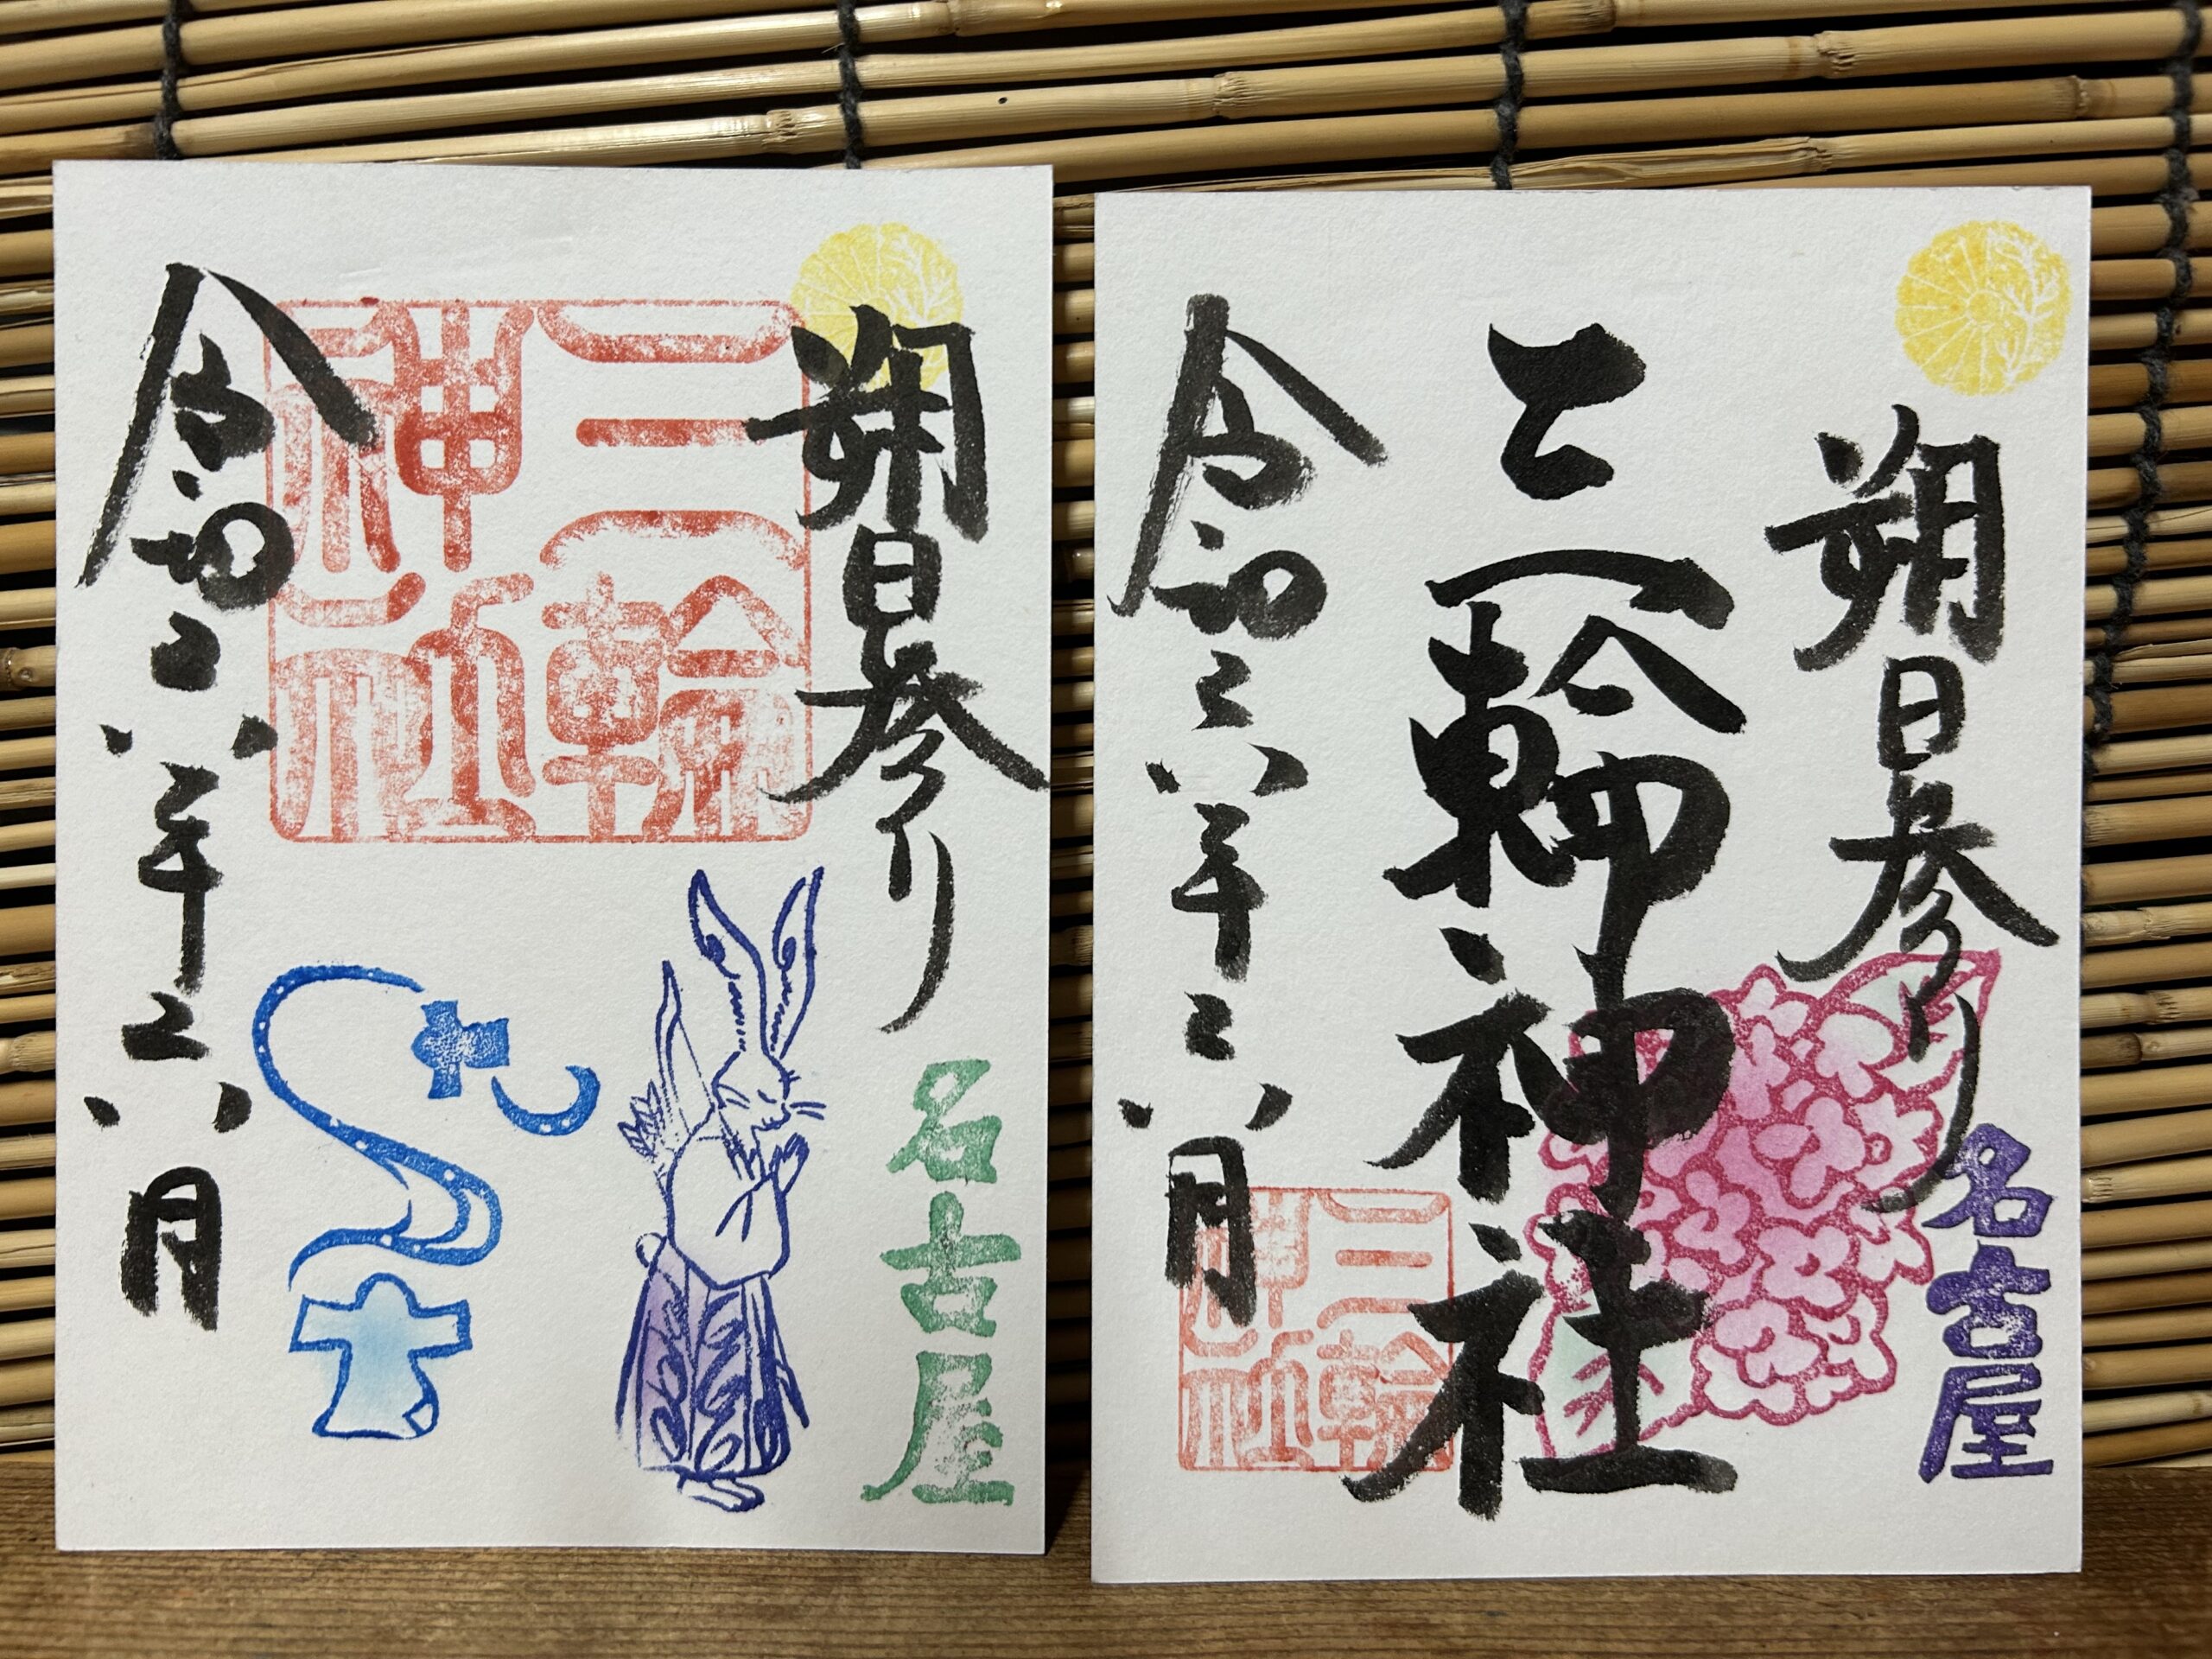 朔日参り
名古屋
三輪
神社
令和六年六月
朔日参り
名古屋
三輪神社
三輪
神社
令和六年六月